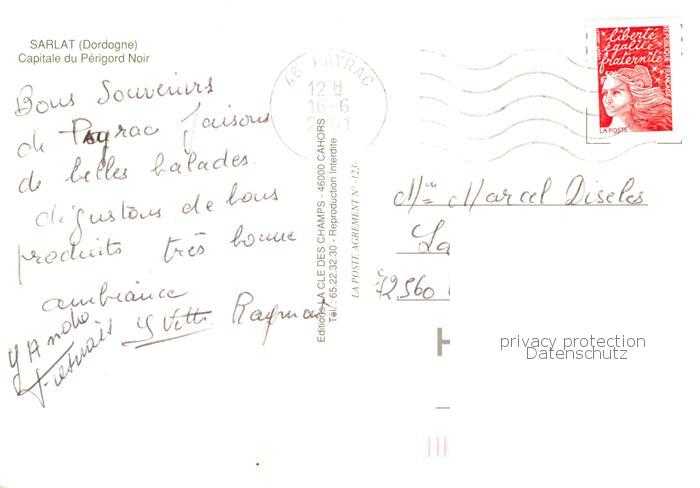 SARLAT (Dordogne)
Capitale du Périgord Noir
Bons Souvenirs
de Payrac faisons
de belles balades.
dégustons de bons
produits très bonne
ambiance
Yvette Raymond
46 PAYRAC
12 H
16-6
Editions LA CLE DES CHAMPS - 46000 CAHORS
Tél. : 65.22.32.30 - Reproduction Interdite
LA POSTE AGREMENT N° -123-
liberté
égalité
fraternité
RÉPUBLIQUE FRANÇAISE
LA POSTE
Marcel Diseles
La
72560
privacy protection
Datenschutz